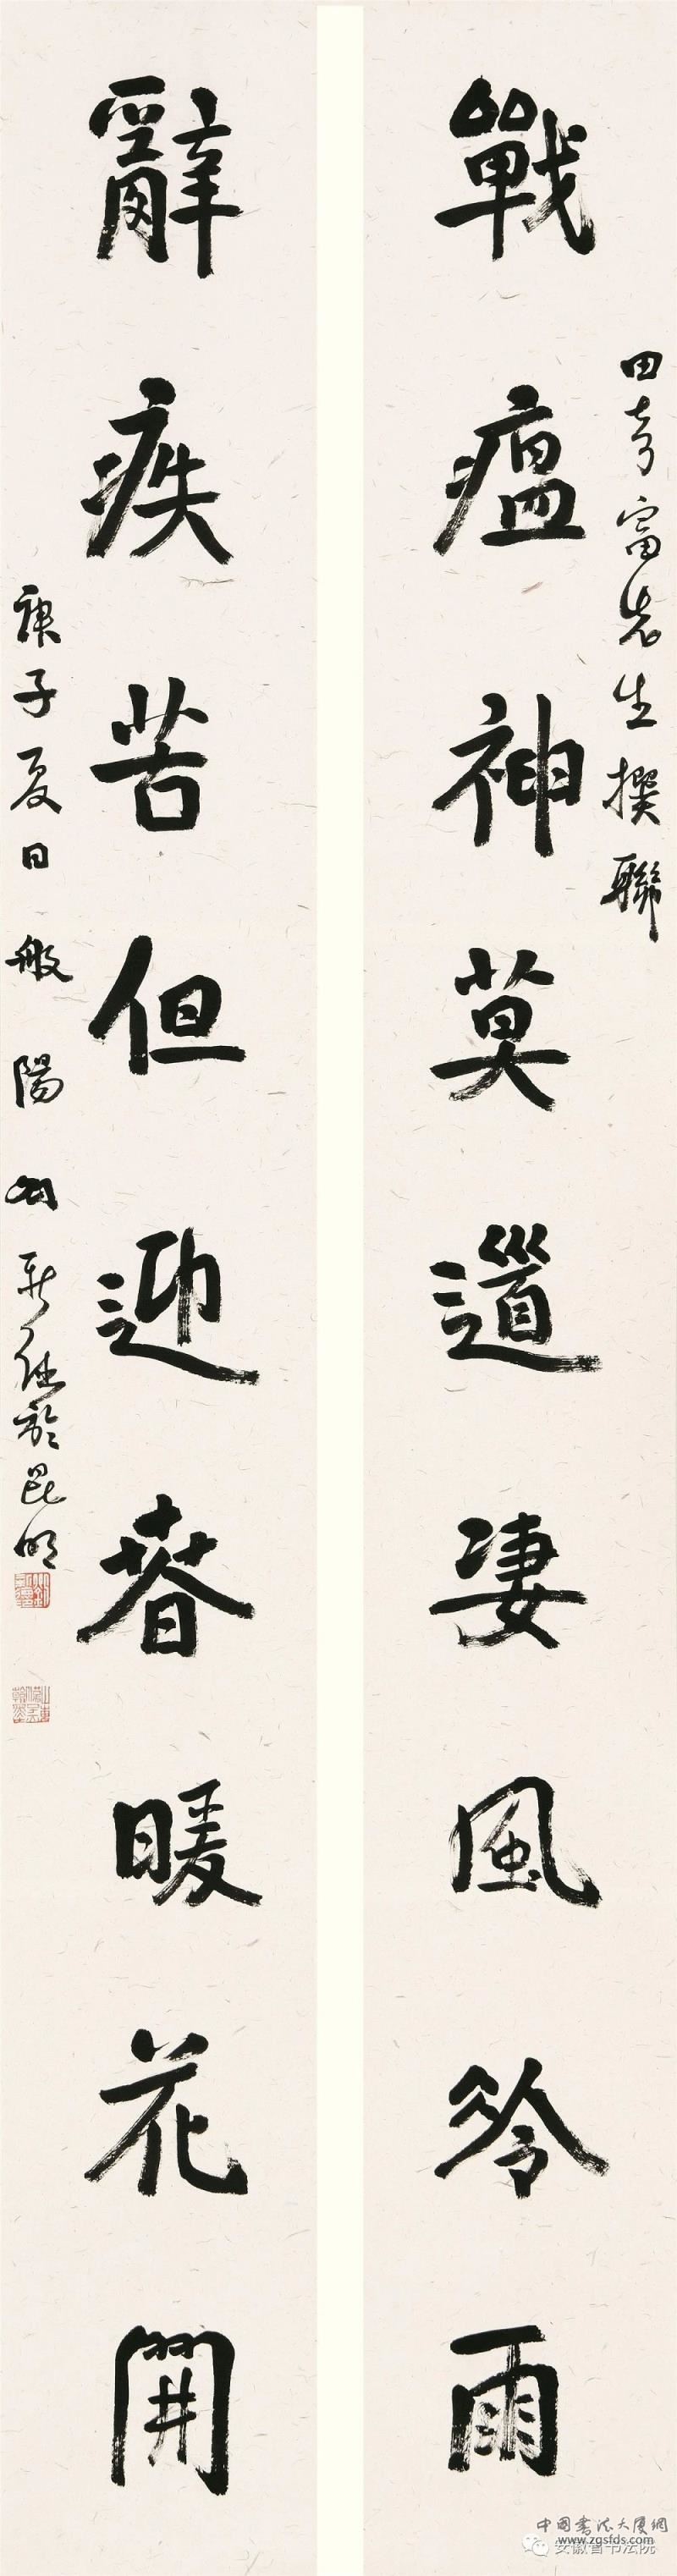 田奇富先生撰聯
戰瘟神莫道凄風冷雨
辭疾苦但迎春暖花開
庚子夏日般陽劉新德於昆明
中國書法大厦網
www.zgsfds.com
安徽省书法院